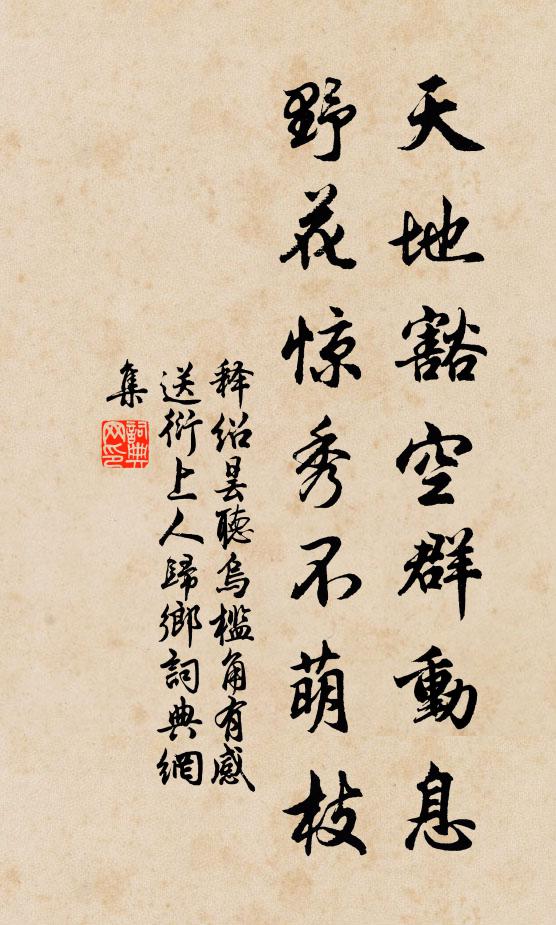 天地豁空群動息
野花惊秀不萌枝
释绍昙聽烏檻角有感
送衍上人歸鄉詞典網
集
詞典
网印